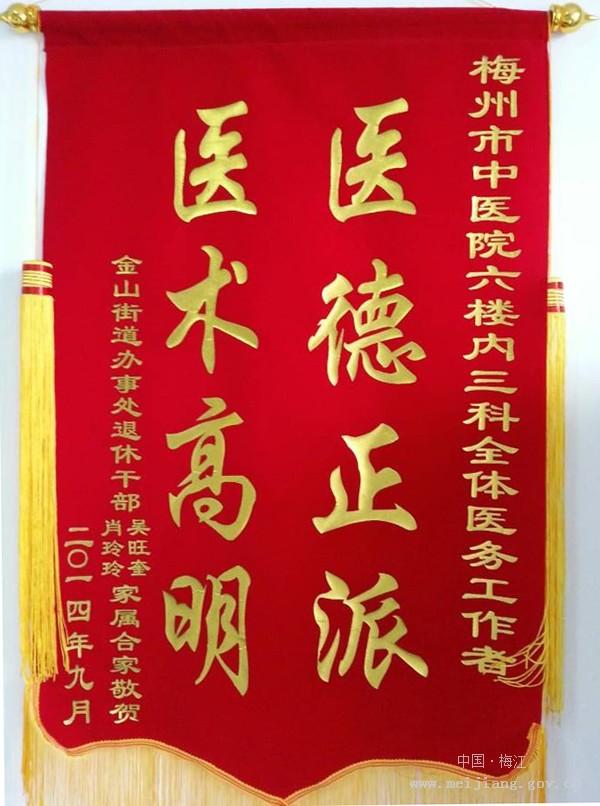 梅州市中医院六楼内三科全体医务工作者
医德正派
医术高明
金山街道办事处退休干部吴旺奎
肖玲玲家属合家敬贺
二〇一四年九月
中国·梅江
www.meijiang.gov.cn